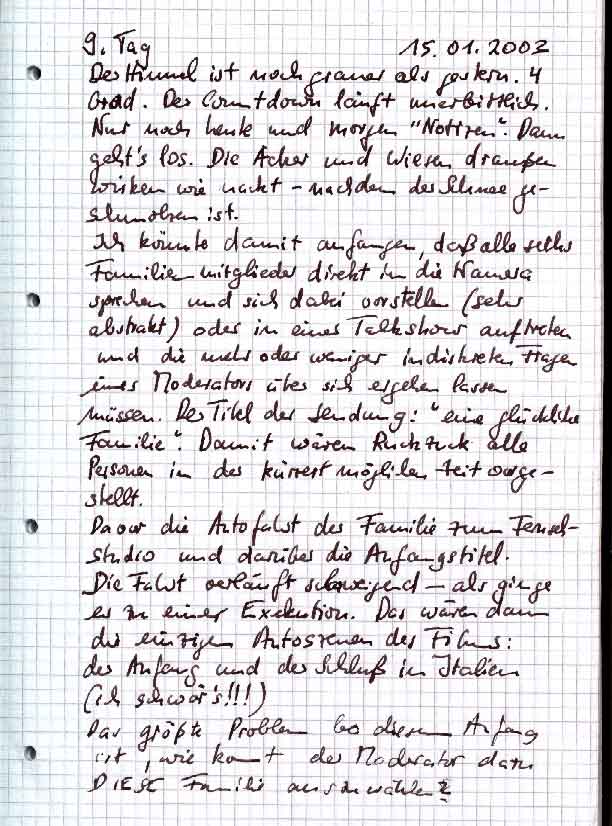 9. Tag 15.01.2002
Der Himmel ist noch grauer als gestern. 4
Grad. Der Countdown läuft unerbittlich.
Nur noch heute und morgen "Notizen". Dann
geht's los. Die Äcker und Wiesen draußen
wirken wie nackt – nachdem der Schnee ge-
schmolzen ist.
Ich könnte damit anfangen, daß alle sechs
Familienmitglieder direkt in die Kamera
sprechen und sich dabei vorstellen (sehr
abstrakt) oder in einer Talkshow auftreten
und die mehr oder weniger indiskreten Fragen
eines Moderators über sich ergehen lassen
müssen. Der Titel der Sendung: "eine glückliche
Familie". Damit wären Ruckzuck alle
Personen in der kürzest möglichen Zeit vorge-
stellt.
Davor die Autofahrt der Familie zum Fernseh-
studio und darüber die Anfangstitel.
Die Fahrt verläuft schweigend – als ginge
es zu einer Exekution. Das wären dann
die einzigen Autoszenen des Films:
der Anfang und der Schluß in Italien
(ich schwör's!!!)
Das größte Problem bei diesem Anfang
ist, wie kommt der Moderator dazu
DIESE Familie auszuwählen?